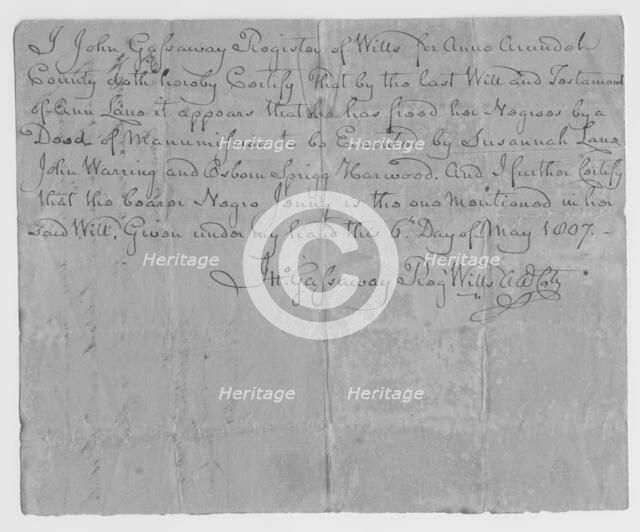 I John Gassaway Register of Wills for Anne Arundel
County doth hereby Certify that by the last Will and Testament
of Ann Lane it appears that she has freed her Negroes by a
Deed of Manumission to be Executed by Susannah Lane
John Warring and Osborn Sprigg Harwood. And I further Certify
that the bearer Negro Jenny is the one Mentioned in her
said Will. Given under my hand this 6th Day of May 1807. –
Jno Gassaway Regr Wills AA Coty
Heritage
Heritage
Heritage
Heritage
Heritage
Heritage